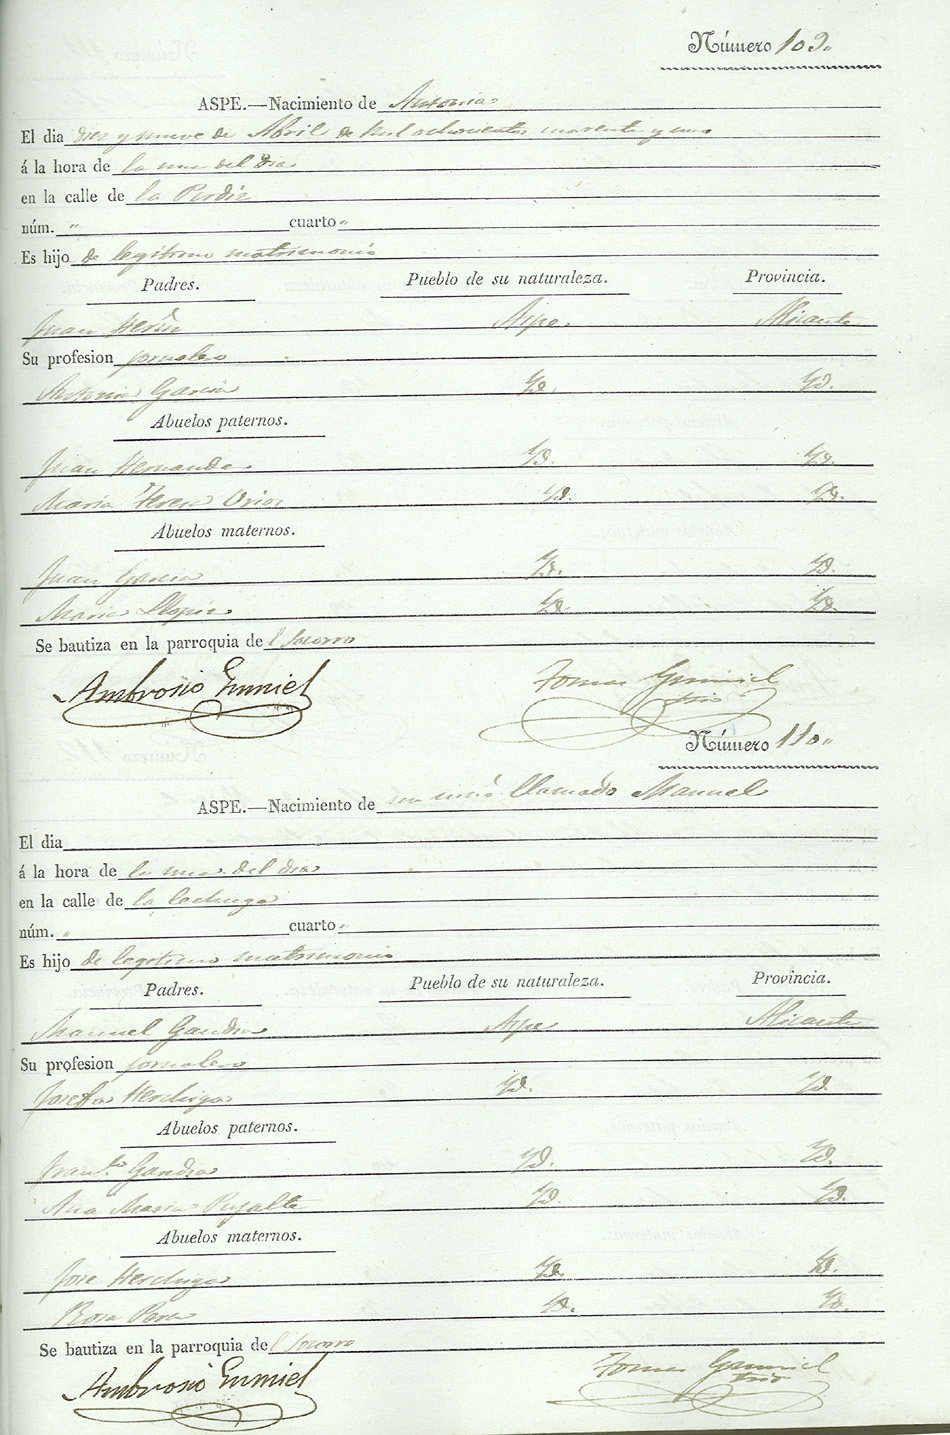 Número 109.
ASPE.—Nacimiento de Antonia
El dia diez y nueve de Abril de mil ochocientos cuarenta y uno
á la hora de la una del dia
en la calle de la Perdiz
núm. " cuarto "
Es hijo de legitimo matrimonio
Padres. Pueblo de su naturaleza. Provincia.
Juan Aspe. Alicante
Su profesion jornalero
Antonia Garcia Yd. Yd.
Abuelos paternos.
Juan Hernandez Yd. Yd.
Maria Teresa Yd. Yd.
Abuelos maternos.
Juan Garcia Yd. Yd.
Maria Llopis Yd. Yd.
Se bautiza en la parroquia del Socorro
Ambrosio Gumiel Tomas Gumiel
Srio
Número 110.
ASPE.—Nacimiento de un niño llamado Manuel
El dia
á la hora de la una del dia
en la calle de la Lechuga
núm. " cuarto "
Es hijo de legitimo matrimonio
Padres. Pueblo de su naturaleza. Provincia.
Manuel Gandia Aspe Alicante
Su profesion jornalero
Josefa Yd. Yd.
Abuelos paternos.
Fran.co Gandia Yd. Yd.
Ana Maria Pujalte Yd. Yd.
Abuelos maternos.
Jose Yd. Yd.
Rosa Yd. Yd.
Se bautiza en la parroquia del Socorro
Ambrosio Gumiel Tomas Gumiel
Srio